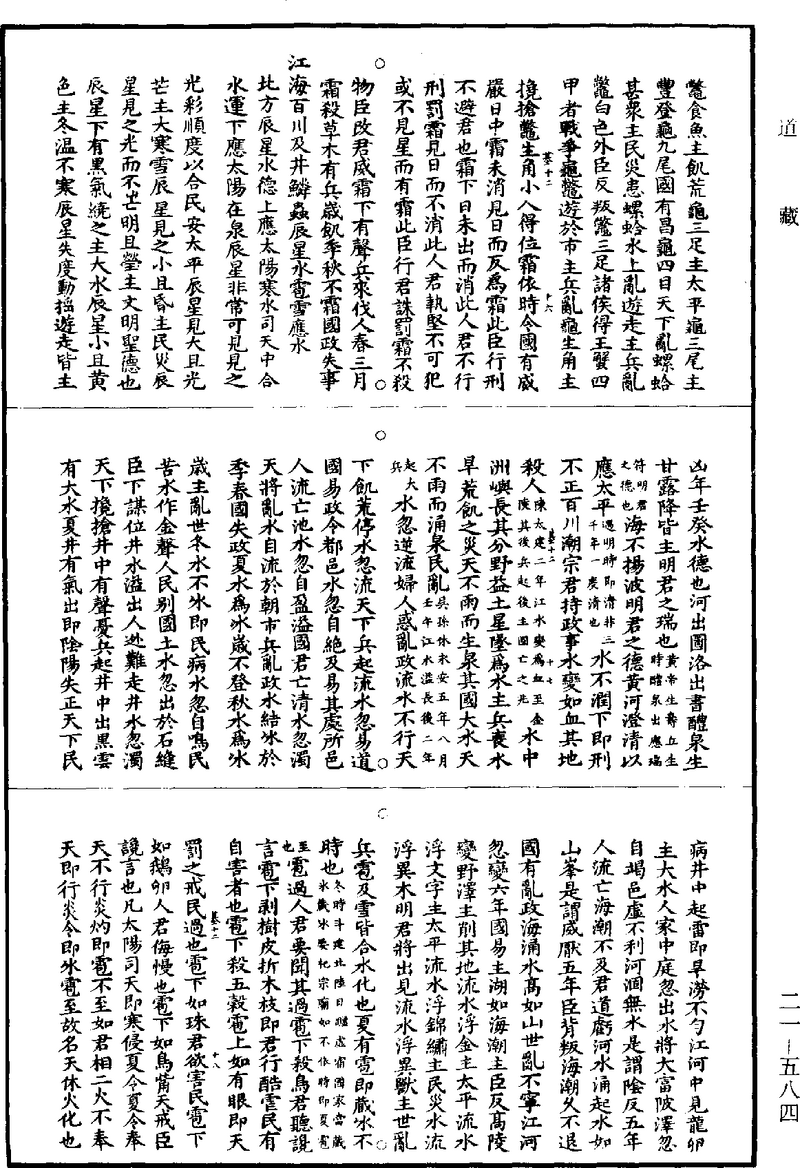 道藏
鼈食魚主飢荒龜三足主太平龜三尾主
豐登龜九尾國有昌龜四目天下亂螺蛤
甚衆主民災患螺蛤水上亂遊走主兵亂
鼈白色外臣反叛鼈三足諸侯得王蟹四
甲者戰爭龜鼈遊於市主兵亂龜生角主
攙搶鼈生角小人得位霜依時令國有威
嚴日中霜未消見日而反爲霜此臣行刑
不避君也霜下日未出而消此人君不行
刑罰霜見日而不消此人君執堅不可犯
或不見星而有霜此臣行君誅罰霜不殺
物臣改君威霜下有聲兵來伐人春三月
霜殺草木有兵歲飢季秋不霜國政失事
江海百川及井鱗蟲辰星水雹雪應水
北方辰星水德上應太陽寒水司天中合
水運下應太陽在泉辰星非常可見見之
光彩順度以合民安太平辰星見大且光
芒主大寒雪辰星見之小且昏主民災辰
星見之光而不芒明且瑩主文明聖德也
辰星下有黑氣繞之主大水辰星小且黃
色主冬溫不寒辰星失度動搖遊走皆主
凶年壬癸水德也河出圖洛出書醴泉生
甘露降皆主明君之瑞也黃帝生壽丘生時醴泉出應瑞
符明君之德也海不揚波明君之德黃河澄清以
應太平遇明時即清非三千年一度清也水不潤下即刑
不正百川潮宗君持政事水變如血其地
殺人陳太建二年江水變爲血至金陵其後兵起後主國亡之兆水中
洲嶼長其分野益土星墜爲水主兵喪水
旱荒飢之災天不雨而生泉其國大水天
不雨而涌泉民亂吳孫休永安五年八月壬午江水溢長後二年
起大兵水忽逆流婦人惑亂政流水不行天
下飢荒停水忽流天下兵起流水忽易道
國易政令都邑水忽自絕及易其處所邑
人流亡池水忽自盈溢國君亡清水忽濁
天將亂水自流於朝市兵亂政水結冰於
季春國失政夏水爲冰歲不登秋水爲冰
歲主亂世冬水不冰即民病水忽自鳴民
苦水作金聲人民別國土水忽出於石縫
臣下謀位井水溢出人逃難走井水忽濁
天下攙搶井中有聲憂兵起井中出黑雲
有大水夏井有氣出即陰陽失正天下民
病井中起雷即旱澇不勻江河中見龍卵
主大水人家中庭忽出水將大富陂澤忽
自竭邑虛不利河涸無水是謂陰反五年
人流亡海潮不及君道虧河水涌起水如
山峯是謂威厭五年臣背叛海潮久不退
國有亂政海涌水高如山世亂不寧江河
忽變六年國易主湖如海潮主臣反高陵
變野澤主削其地流水浮金主太平流水
浮文字主太平流水浮錦繡主民災水流
浮異木明君將出見流水浮異獸主世亂
兵雹及雪皆合水化也夏有雹即藏冰不
時也冬時斗建北陸日纏虛宿國家當藏冰藏冰祭祀宗廟如不依時即夏雹
至也雹過人君要聞其過雹下殺鳥君聽讒
言雹下剝樹皮折木枝即君行酷虐民有
自害者也雹下殺五穀雹上如有眼即天
罰之戒民過也雹下如珠君欲害民雹下
如鵝卵人君侮慢也雹下如鳥窩天戒臣
讒言也凡太陽司天即寒侵夏令夏令奉
天不行炎灼即雹不至如君相二火不奉
天即行炎令即冰雹至故名天休火化也
墓十二
十六
墓十二
十七
墓十二
十八
二一—五八四